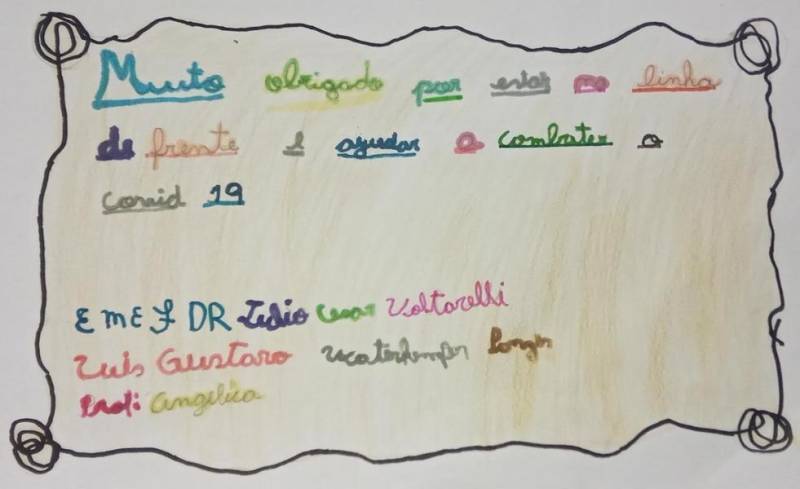 Muito obrigado por estar na linha
de frente e ajudar a combater o
covid 19
E M E F DR Cesar Voltarelli
Luis Gustavo
Prof: Angélica